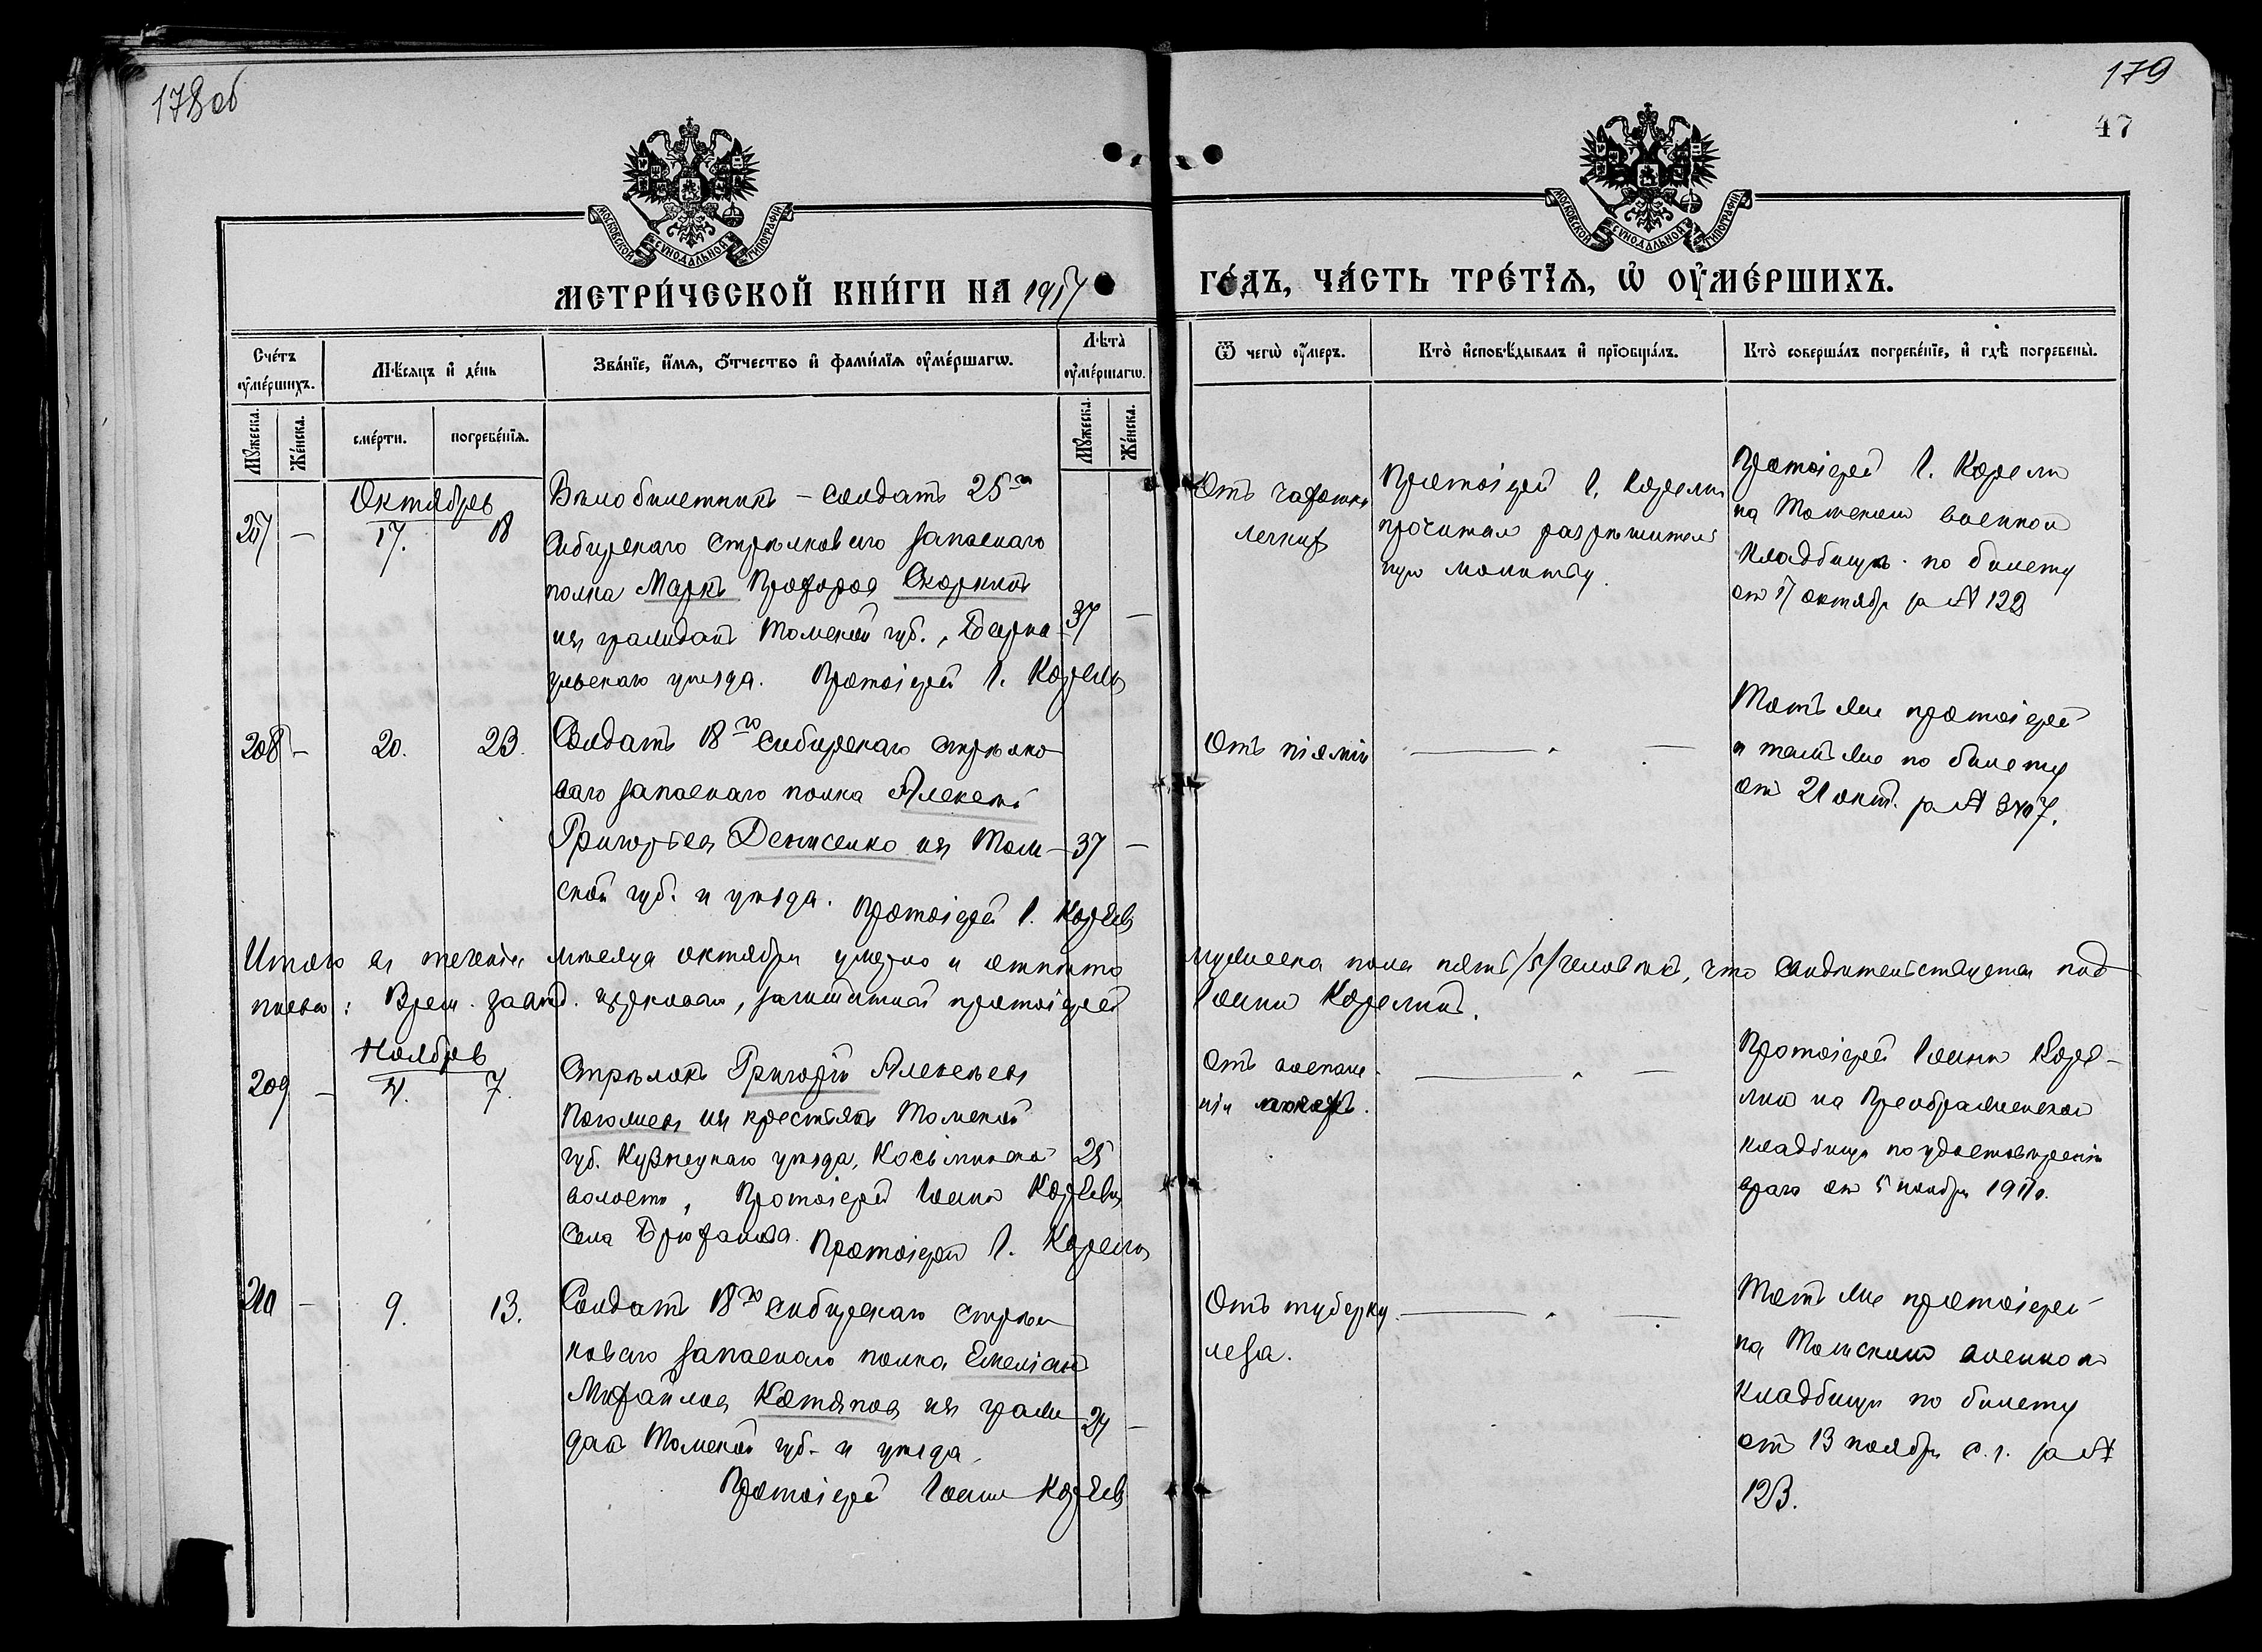 178 об
179
47
МОСКОВСКОЙ СѴНОДАЛЬНОЙ ТИПОГРАФІИ
МОСКОВСКОЙ СѴНОДАЛЬНОЙ ТИПОГРАФІИ
МЕТРИ́ЧЕСКОЙ КНИ́ГИ НА 1917
ГО́ДЪ, ЧА́СТЬ ТРЕ́ТІѦ, Ѡ҆ ОУ҆МЕ́РШИХЪ.
Сче́тъ оумершихъ.
Мѣсяцъ и де́нь
Зва́нїе, и҆́мя, ѻ҆́тчество и҆ фами́лїя оу҆ме́ршагѡ.
Лѣта̀ оуме́ршагѡ.
Ѿ чегѡ̀ оу҆́меръ.
Кто̀ и҆сповѣ́дывалъ и҆ прїѡбща́лъ.
Кто̀ соверша́лъ погребе́нїе, и҆ гдѣ̀ погребены̀.
Мꙋ́жеска.
Же́нска.
сме́рти.
погребе́нїя.
Мꙋ́жеска.
Же́нска.
Октябрь
207 — 17. 18
Бѣлобилетникъ – солдатъ 25го
Сибирскаго стрѣлковаго запаснаго
полка Маркъ Прохоровъ
изъ граждан Томской губ., Барна-
ульскаго уѣзда. Протоіерей І. Корелинъ
37 —
Отъ чахотки
легких
Протоіерей І. Корелинъ
прочитал разрѣшитель
ную молитву.
Протоіерей І. Корелин
на Томском военном
кладбищѣ по билету
от 17 октябр за № 122
208 — 20. 23.
Солдатъ 18го Сибирскаго стрѣлко-
ваго запаснаго полка Алексѣй
Григорьевъ Денисенко изъ Том-
ской губ. и уѣзда. Протоіерей І. Корелинъ
37 —
Отъ піэміи
Тотъ же протоіерей
и тамъ же по билету
от 21 окт. за № 3407.
Итого въ теченіи мѣсяца октября умерло и отпѣто
мужеска пола пять /5/ человѣкъ, что свидѣтельствуетъ под-
писью: Врем. завѣд. церковью, заштатный протоіерей
Іоаннъ Корелинъ.
Ноябрь
209 — 4. 7.
Стрѣлокъ Григорій Алексѣевъ
изъ крестьянъ Томской
губ. Кузнецкаго уѣзда, Косьминской
волости, Протоіерей Іоаннъ Корелинъ
села Брюханова. Протоіерей І. Корелинъ
25
Отъ воспале-
нія легкихъ.
Протоіерей Іоаннъ Коре-
линъ на Преображенском
кладбищѣ по удостовѣренію
врача от 5 ноября 1917 г.
210 — 9. 13.
Солдатъ 18го Сибирскаго стрѣл-
коваго запаснаго полка Емеліанъ
Михайловъ изъ граж-
данъ Томской губ. и уѣзда.
Протоіерей Іоаннъ Корелинъ
24 —
Отъ туберку-
леза.
Тотъ же протоіерей
на Томском военном
кладбищѣ по билету
от 13 ноября с. г. за №
123.